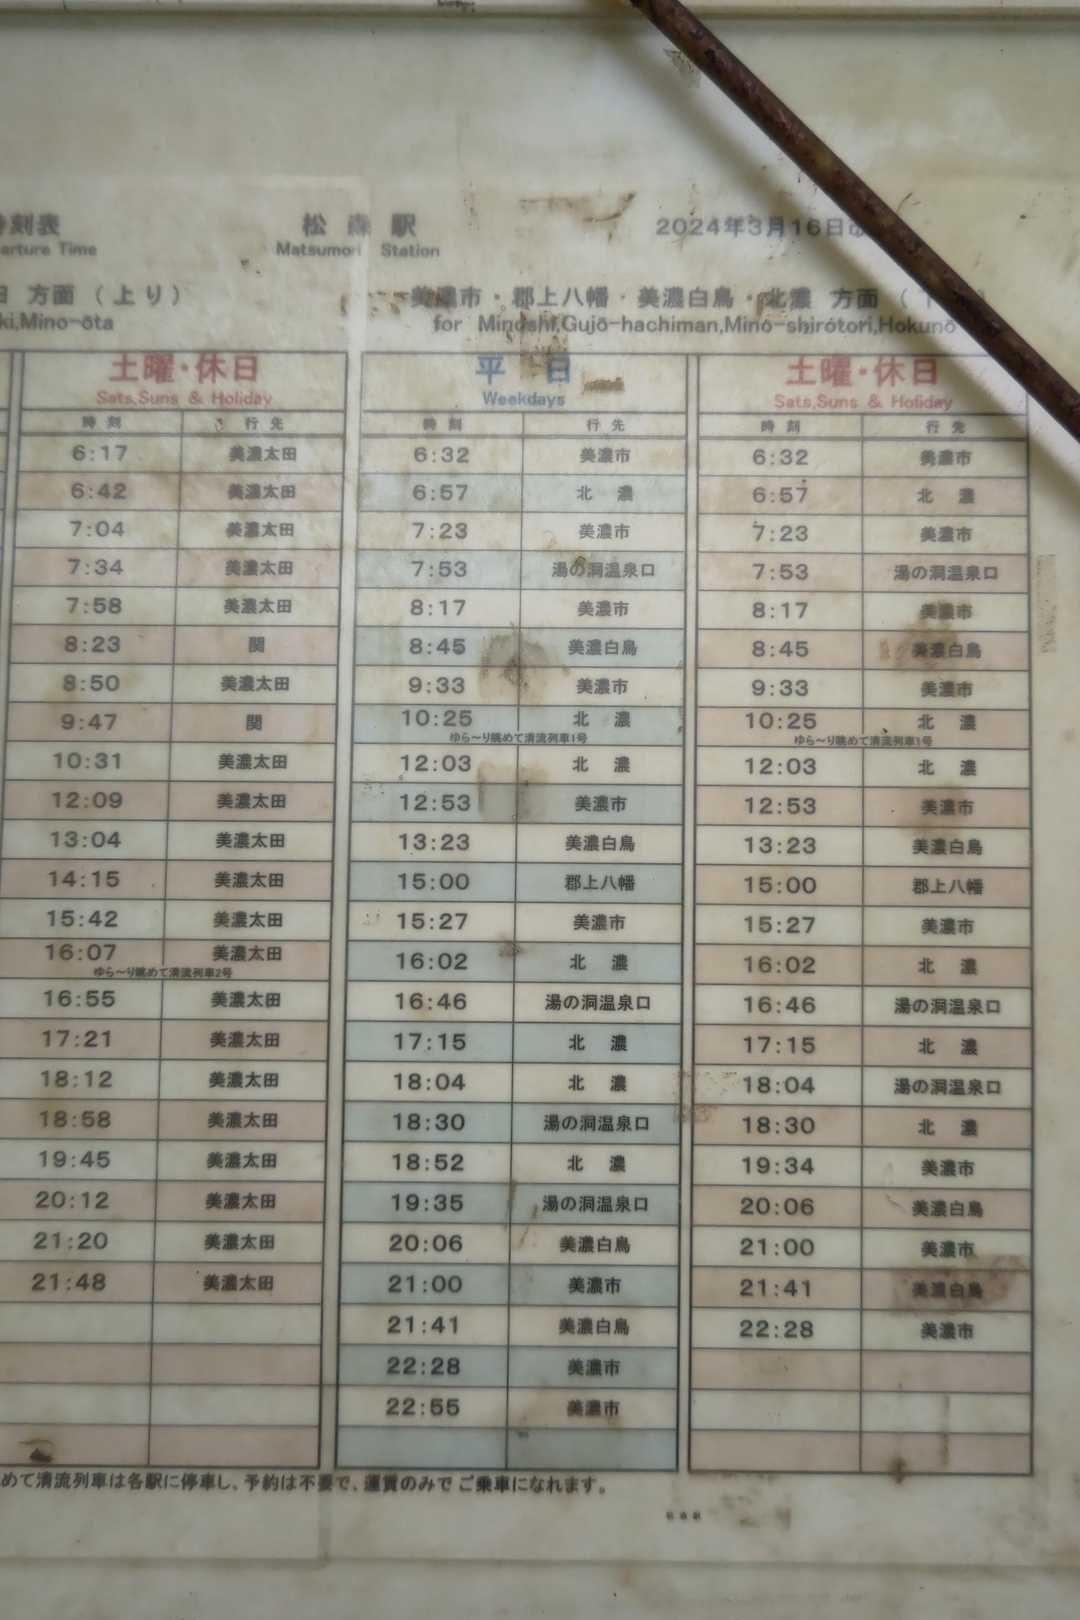 時刻表 松森駅 2024年3月16日
arture Time Matsumori Station
方面(上り) 美濃市・郡上八幡・美濃白鳥・北濃 方面(
ki,Mino-ōta for Minoshi,Gujō-hachiman,Mino-shirotori,Hokunō
土曜・休日 平日 土曜・休日
Sats,Suns & Holiday Weekdays Sats,Suns & Holiday
時刻 行先 時刻 行先 時刻 行先
6:17 美濃太田 6:32 美濃市 6:32 美濃市
6:42 美濃太田 6:57 北濃 6:57 北濃
7:04 美濃太田 7:23 美濃市 7:23 美濃市
7:34 美濃太田 7:53 湯の洞温泉口 7:53 湯の洞温泉口
7:58 美濃太田 8:17 美濃市 8:17 美濃市
8:23 関 8:45 美濃白鳥 8:45 美濃白鳥
8:50 美濃太田 9:33 美濃市 9:33 美濃市
9:47 関 10:25 北濃 10:25 北濃
ゆら～り眺めて清流列車1号 ゆら～り眺めて清流列車1号
10:31 美濃太田 12:03 北濃 12:03 北濃
12:09 美濃太田 12:53 美濃市 12:53 美濃市
13:04 美濃太田 13:23 美濃白鳥 13:23 美濃白鳥
14:15 美濃太田 15:00 郡上八幡 15:00 郡上八幡
15:42 美濃太田 15:27 美濃市 15:27 美濃市
16:07 美濃太田 16:02 北濃 16:02 北濃
ゆら～り眺めて清流列車2号
16:55 美濃太田 16:46 湯の洞温泉口 16:46 湯の洞温泉口
17:21 美濃太田 17:15 北濃 17:15 北濃
18:12 美濃太田 18:04 北濃 18:04 湯の洞温泉口
18:58 美濃太田 18:30 湯の洞温泉口 18:30 北濃
19:45 美濃太田 18:52 北濃 19:34 美濃市
20:12 美濃太田 19:35 湯の洞温泉口 20:06 美濃白鳥
21:20 美濃太田 20:06 美濃白鳥 21:00 美濃市
21:48 美濃太田 21:00 美濃市 21:41 美濃白鳥
21:41 美濃白鳥 22:28 美濃市
22:28 美濃市
22:55 美濃市
めて清流列車は各駅に停車し、予約は不要で、運賃のみでご乗車になれます。